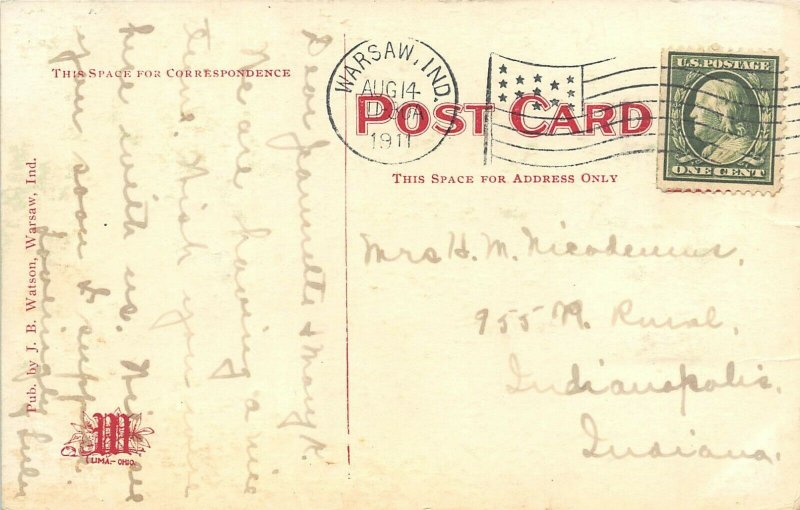 THIS SPACE FOR CORRESPONDENCE
WARSAW, IND.
AUG 14
1911
U.S. POSTAGE
ONE CENT
POST CARD
THIS SPACE FOR ADDRESS ONLY
Mrs H. M. Nicodemus,
955 N. Rural,
Indianapolis,
Indiana.
Dear Jeannette & Mary K.
We are having a nice
time. Wish you were
here with us. Will see
you soon I suppose.
Lovingly
Pub. by J. B. Watson, Warsaw, Ind.
M
LIMA.-OHIO.